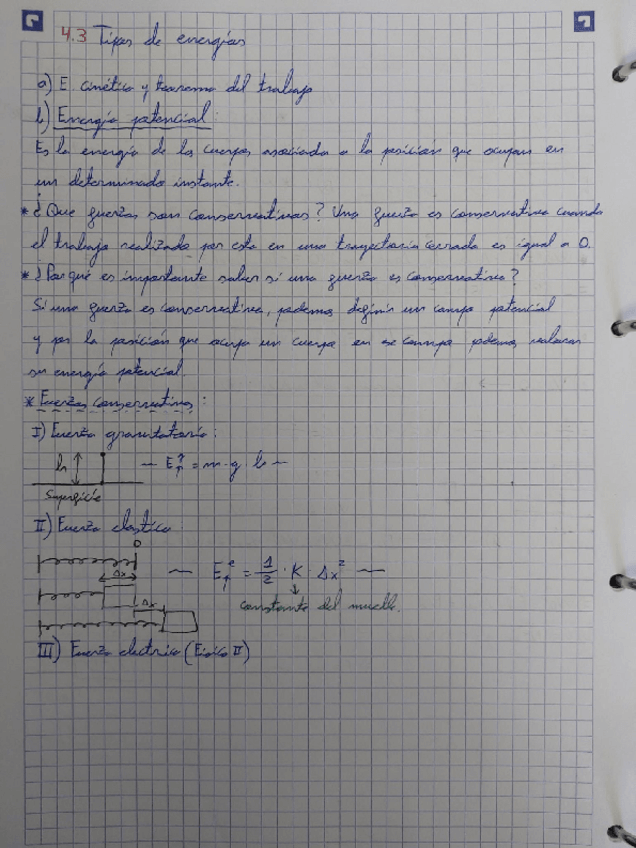 4.3 Tipos de energías
a) E cinética y teorema del trabajo
b) Energía potencial:
Es la energía de los cuerpos asociada a la posición que ocupan en
un determinado instante.
* ¿Que fuerzas son conservativas? Una fuerza es conservativa cuando
el trabajo realizado por esta en una trayectoria cerrada es igual a 0.
* ¿Por qué es importante saber si una fuerza es conservativa?
Si una fuerza es conservativa, podemos definir un campo potencial
y por la posición que ocupa un cuerpo en ese campo podemos valorar
su energía potencial.
* Fuerzas conservativas:
I) Fuerza gravitatoria:
h — Ep^g = m·g·h —
Superficie
II) Fuerza elástica:
0
Δx — Ep^e = 1/2 · K · Δx² —
Δx constante del muelle.
III) Fuerza electrica (Física II)